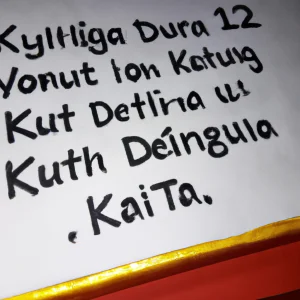 Kyltliga Dura 12
Yonut Ion Katung
Kut Detlina ut
Kuth Deíngula
. KaiTa.